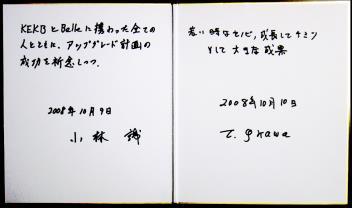 KEKBとBelleに携わった全ての
人とともに、アップグレード計画の
成功を祈念しつつ.
2008年10月9日
小林 誠
若い時
成長して
そして大きな成果
2008年10月10日